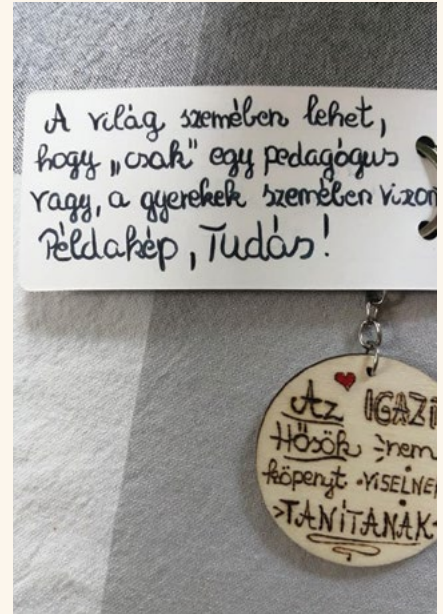 A világ szemében lehet,
hogy „csak" egy pedagógus
vagy, a gyerekek szemében vizon
Példakép, Tudás!
Az IGAZI
Hősök nem
köpenyt VISELNE
TANÍTANAK